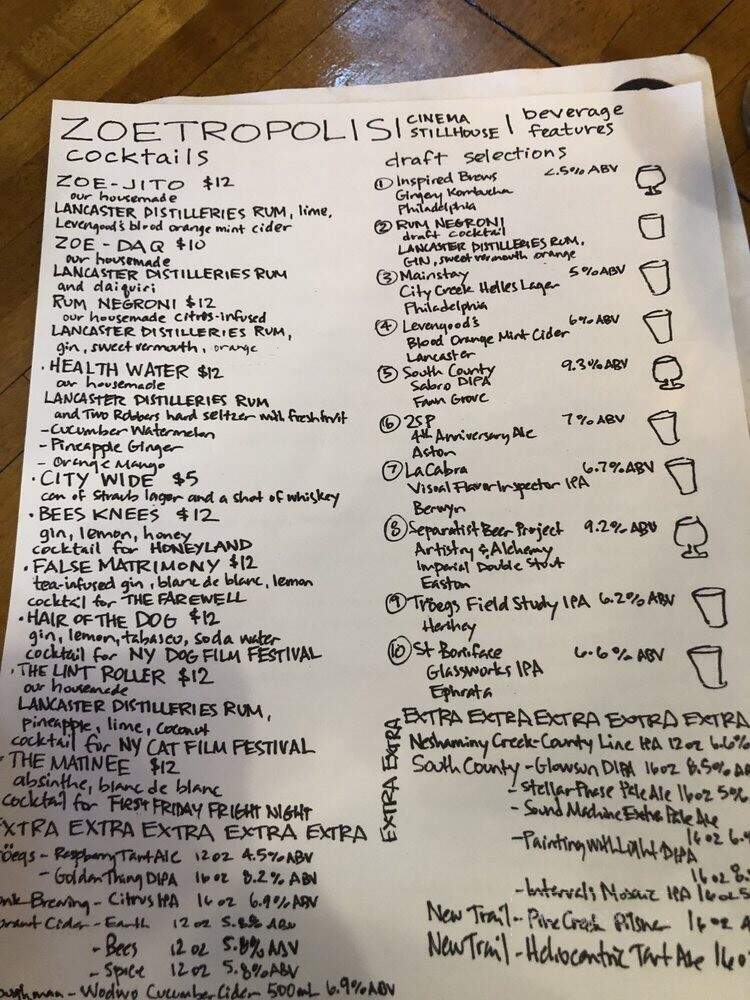 ZOETROPOLIS | CINEMA STILLHOUSE | beverage features
cocktails
ZOE-JITO $12
our housemade
LANCASTER DISTILLERIES RUM, lime,
Levengood's blood orange mint cider
ZOE-DAQ $10
our housemade
LANCASTER DISTILLERIES RUM
and daiquiri
RUM NEGRONI $12
our housemade citrus-infused
LANCASTER DISTILLERIES RUM,
gin, sweet vermouth, orange
· HEALTH WATER $12
our housemade
LANCASTER DISTILLERIES RUM
and Two Robbers hard seltzer with fresh fruit
- Cucumber Watermelon
- Pineapple Ginger
- Orange Mango
· CITY WIDE $5
can of Straub lager and a shot of whiskey
· BEES KNEES $12
gin, lemon, honey
cocktail for HONEYLAND
· FALSE MATRIMONY $12
tea-infused gin, blanc de blanc, lemon
cocktail for THE FAREWELL
· HAIR OF THE DOG $12
gin, lemon, tabasco, soda water
cocktail for NY DOG FILM FESTIVAL
· THE LINT ROLLER $12
our housemade
LANCASTER DISTILLERIES RUM,
pineapple, lime, coconut
cocktail for NY CAT FILM FESTIVAL
· THE MATINEE $12
absinthe, blanc de blanc
cocktail for FIRST FRIDAY FRIGHT NIGHT
EXTRA EXTRA EXTRA EXTRA EXTRA
öegs - Raspberry Tart Ale 12 oz 4.5% ABV
- Golden Thang DIPA 16 oz 8.2% ABV
Brewing - Citrus IPA 16 oz 6.9% ABV
Cider - Earth 12 oz 5.8% ABV
- Bees 12 oz 5.8% ABV
- Spice 12 oz 5.8% ABV
- Wodwo Cucumber Cider 500mL 6.9% ABV
draft selections
① Inspired Brews <.5% ABV
Gingery Kombucha
Philadelphia
② RUM NEGRONI
draft cocktail
LANCASTER DISTILLERIES RUM,
GIN, sweet vermouth orange
③ Mainstay 5% ABV
City Creek Helles Lager
Philadelphia
④ Levengood's 6% ABV
Blood Orange Mint Cider
Lancaster
⑤ South County 9.3% ABV
Sabro DIPA
Fawn Grove
⑥ 2SP 7% ABV
4th Anniversary Ale
Aston
⑦ La Cabra 6.7% ABV
Visual Flavor Inspector IPA
Berwyn
⑧ Separatist Beer Project 9.2% ABV
Artistry & Alchemy
Imperial Double Stout
Easton
⑨ Tröegs Field Study IPA 6.2% ABV
Hershey
⑩ St Boniface 6.6% ABV
Glassworks IPA
Ephrata
EXTRA EXTRA EXTRA EXTRA EXTRA
EXTRA EXTRA
Neshaminy Creek - County Line IPA 12 oz 6.6%
South County - Glowsun DIPA 16 oz 8.5%
- Stellar Phase Pale Ale 16 oz 5%
- Sound Machine Extra Pale Ale
16 oz 6.
- Painting with Light DIPA
16 oz 8.
- Intervals Mosaic IPA 16 oz 5
New Trail - Pine Creek Pilsner 16 oz
New Trail - Heliocentric Tart Ale 16 o